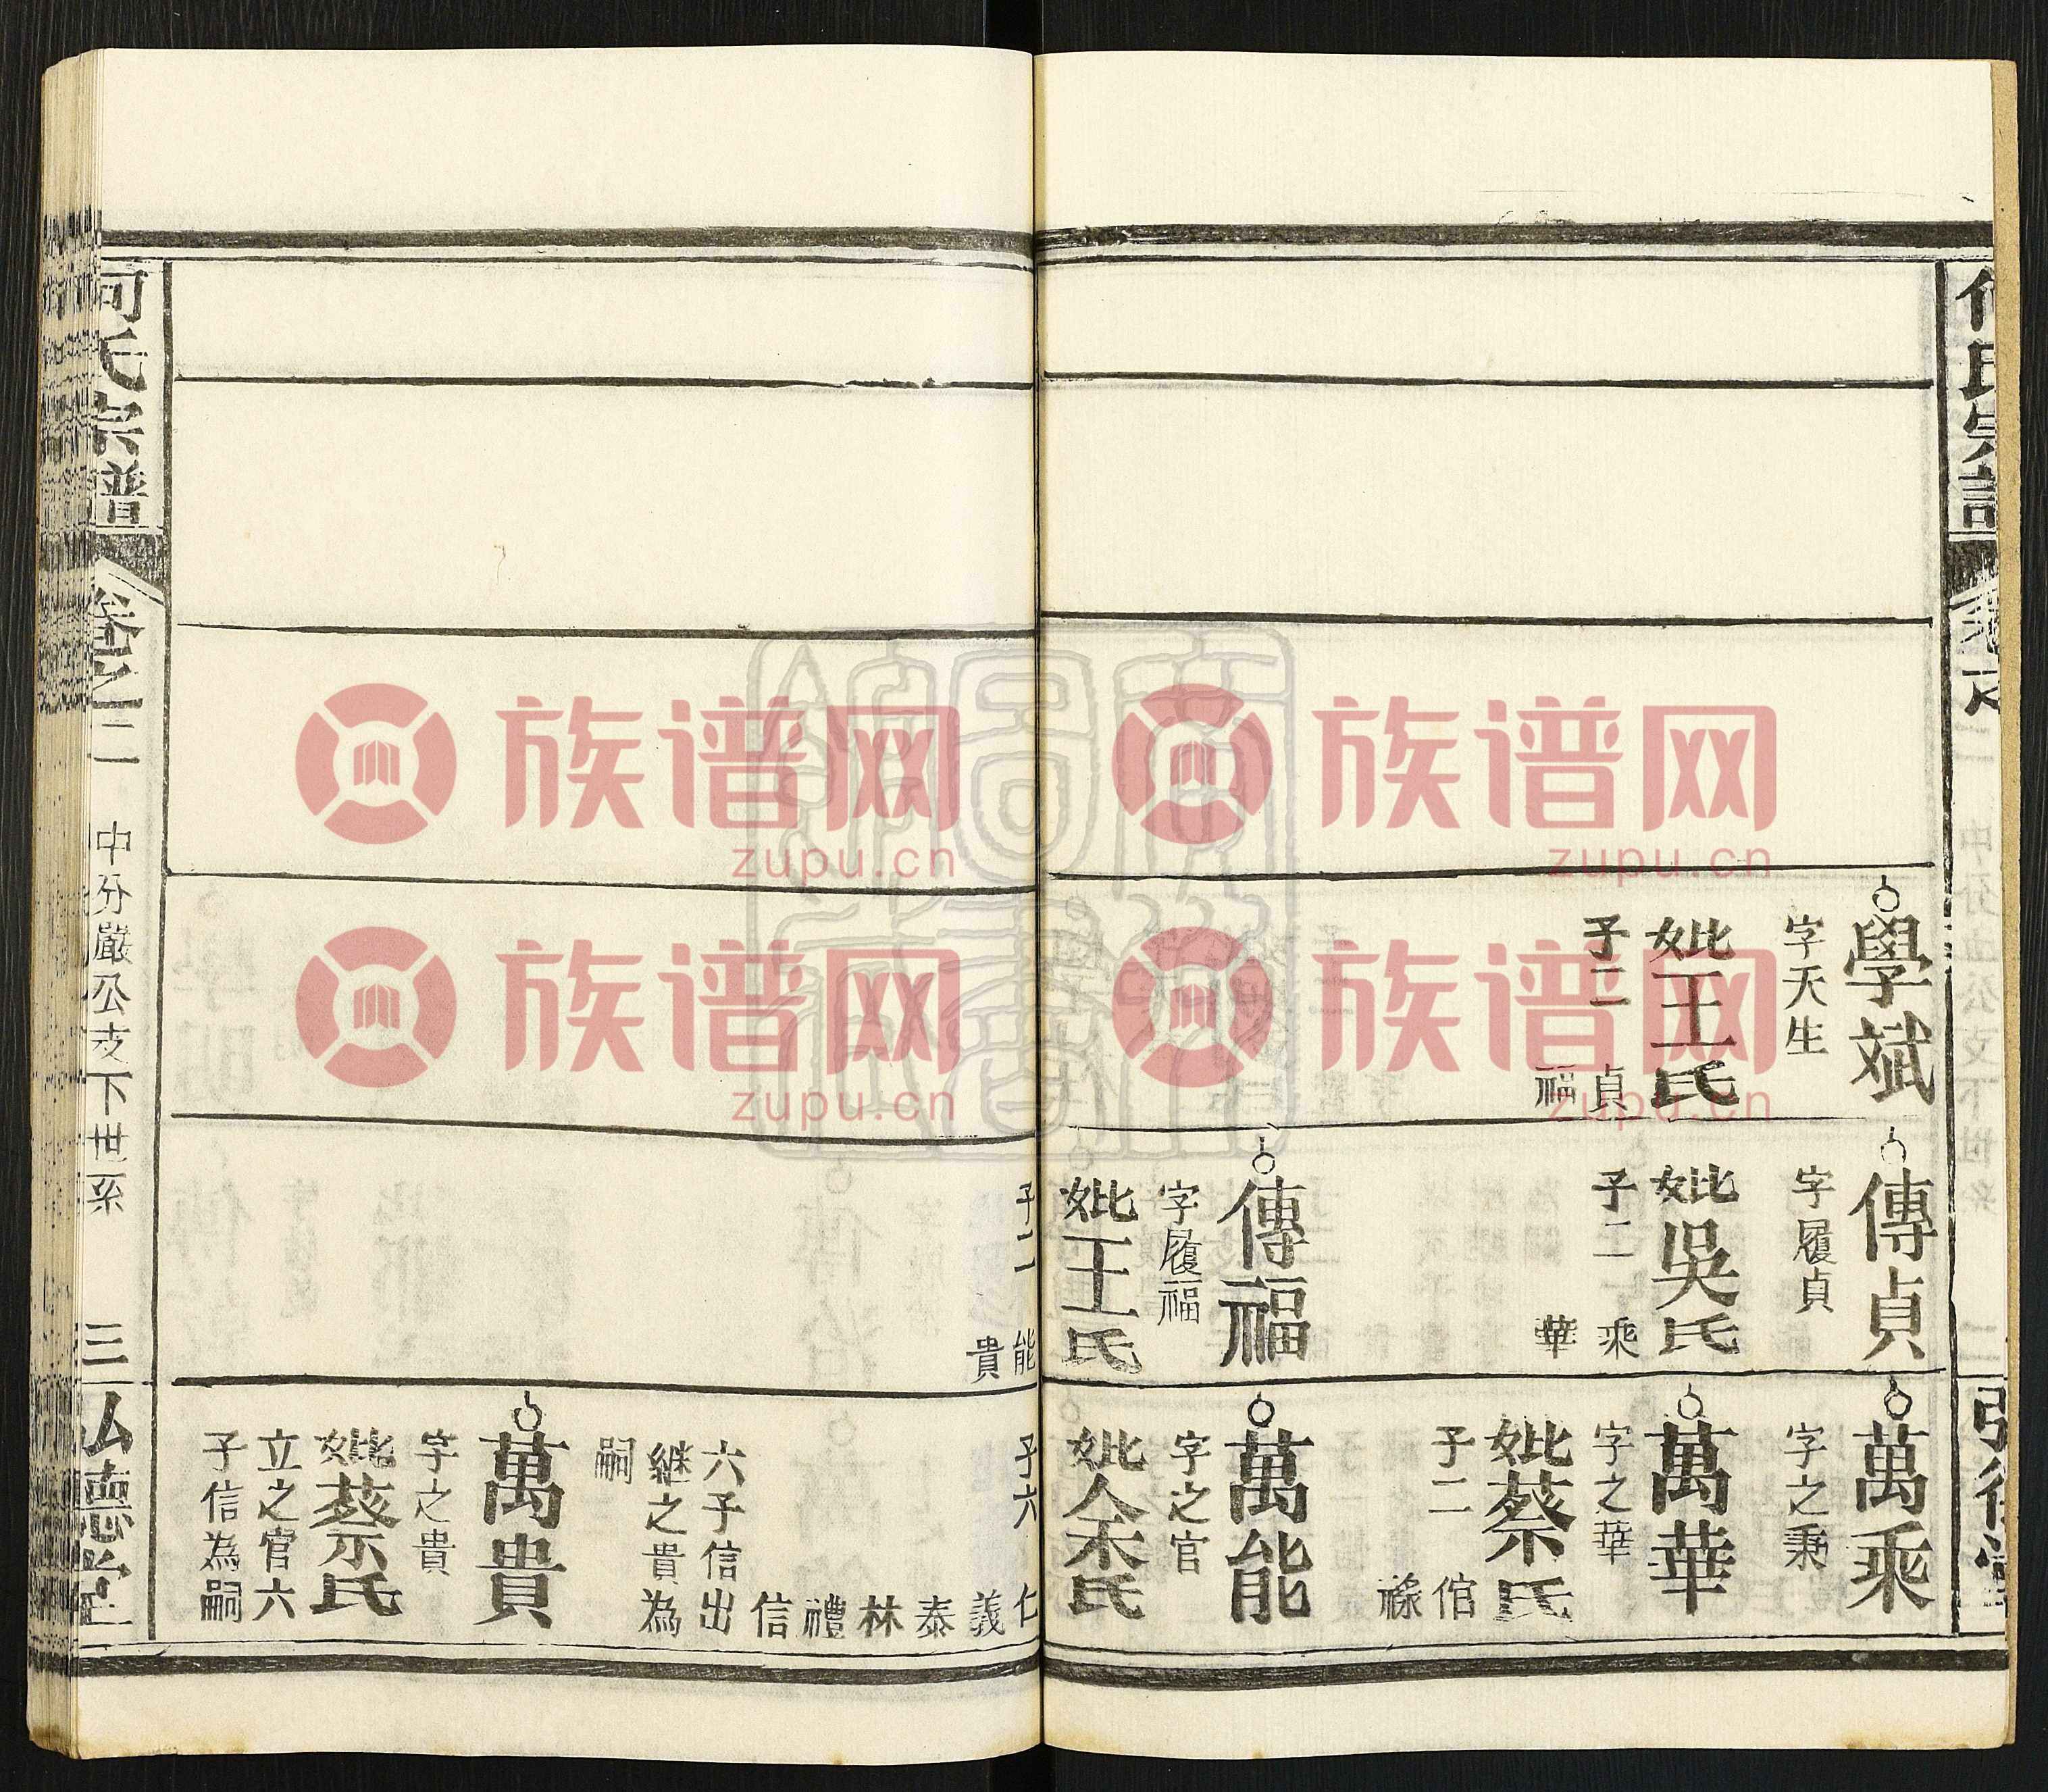 何氏宗譜
學斌
字天生
妣王氏
子二 貞
福
傳貞
字履貞
妣吳氏
子二 乘
華
傳福
字履福
妣王氏
萬乘
字之秉
萬華
字之華
妣蔡氏
子二 倌
祿
萬能
字之官
妣余氏
子二 能
貴
子六 仁
義
泰
林
禮
信
六子信出
継之貴為
嗣
萬貴
字之貴
妣蔡氏
立之官六
子信為嗣
何氏宗譜
卷之二
中分嚴公支下世系
三
弘德堂
族谱网
zupu.cn
族谱网
zupu.cn
族谱网
zupu.cn
族谱网
zupu.cn